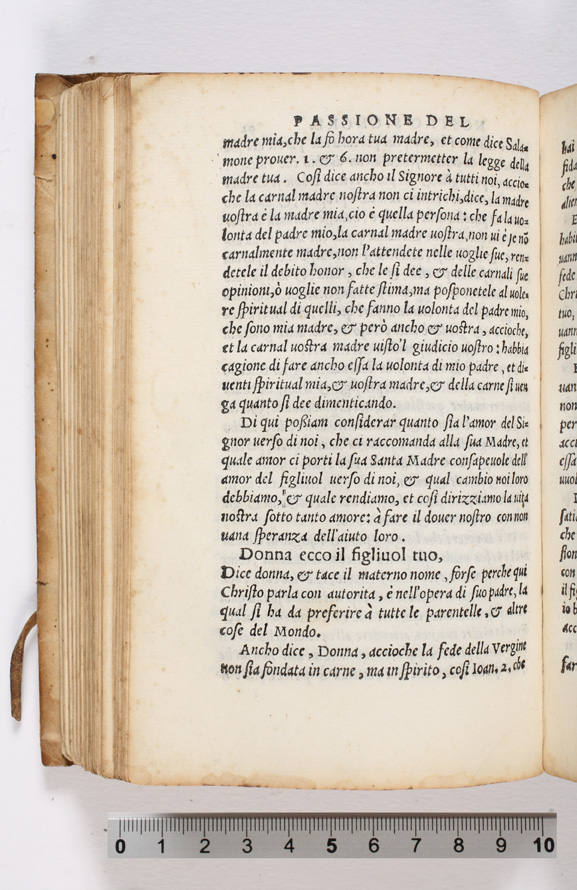 PASSIONE DEL
madre mia, che la fo hora tua madre, et come dice Sala-
mone prouer. 1. & 6. non pretermetter la legge della
madre tua. Cosi dice ancho il Signore à tutti noi, accio-
che la carnal madre nostra non ci intrichi, dice, la madre
uostra è la madre mia, cio è quella persona: che fa la uo-
lonta del padre mio, la carnal madre uostra, non ui è se nõ
carnalmente madre, non l'attendete nelle uoglie sue, ren-
detele il debito honor, che le si dee, & delle carnali sue
opinioni, ò uoglie non fatte stima, ma posponetele al uole-
re spiritual di quelli, che fanno la uolonta del padre mio,
che sono mia madre, & però ancho & uostra, accioche,
et la carnal uostra madre uisto'l giudicio uostro: habbia
cagione di fare ancho essa la uolonta di mio padre, et di-
uenti spiritual mia, & uostra madre, & della carne si uen
ga quanto si dee dimenticando.
Di qui possiam considerar quanto sia l'amor del Si-
gnor uerso di noi, che ci raccomanda alla sua Madre, et
quale amor ci porti la sua Santa Madre consapeuole dell'
amor del figliuol uerso di noi, & qual cambio noi loro
debbiamo, & quale rendiamo, et cosi dirizziamo la uita
nostra sotto tanto amore: à fare il douer nostro con non
uana speranza dell'aiuto loro.
Donna ecco il figliuol tuo,
Dice donna, & tace il materno nome, forse perche qui
Christo parla con autorita, è nell'opera di suo padre, la
qual si ha da preferire à tutte le parentelle, & altre
cose del Mondo.
Ancho dice, Donna, accioche la fede della Vergine
non sia fondata in carne, ma in spirito, cosi Ioan. 2, che
0 1 2 3 4 5 6 7 8 9 10